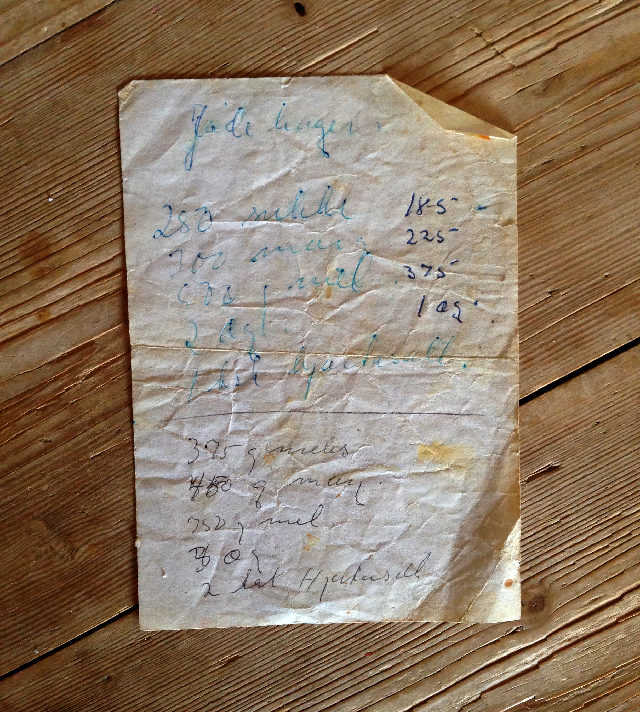 Jødekager.
250 sukke 185
300 marg 225
500 g mel 375
2 æg 1 æg
1 tsk hjortesalt.
375 g melis
450 g marg.
750 g mel
3 æg
2 tsk Hjortesalt